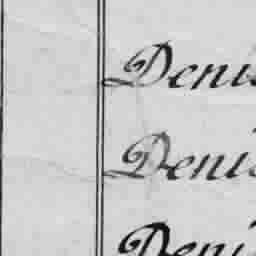 Denis
Denis
Deni